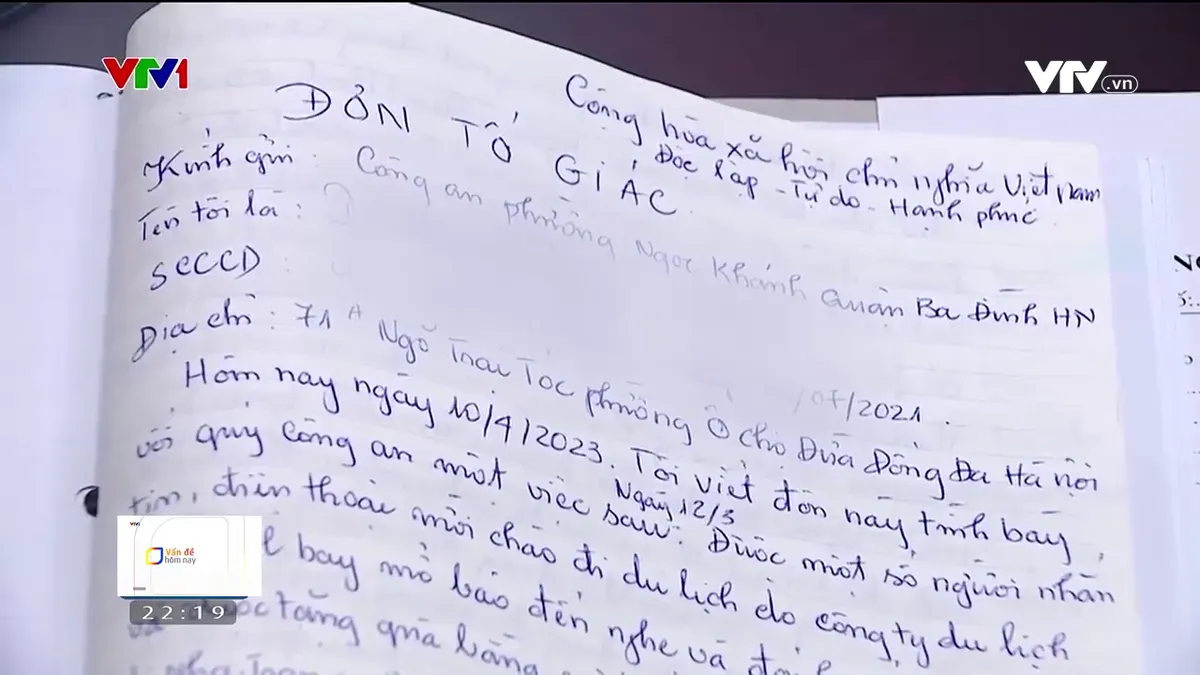 VTV1
VTV.vn
Cộng hòa xã hội chủ nghĩa Việt Nam
Độc lập - Tự do - Hạnh phúc
ĐƠN TỐ GIÁC
Kính gửi: Công an phường Ngọc Khánh Quận Ba Đình HN
Tên tôi là:
SCCCD:
/07/2021.
Địa chỉ: 71A Ngõ Trại Tóc phường Ô chợ Dừa Đống Đa Hà nội
Hôm nay ngày 10/4/2023. Tôi viết đơn này trình bày
với quý công an một việc sau: Được một số người nhắn
Ngày 12/3
tin, điện thoại mời chào đi du lịch do công ty du lịch
bay mở báo đến nghe và
tặng quà bằng
Vấn đề
hôm nay
22:19